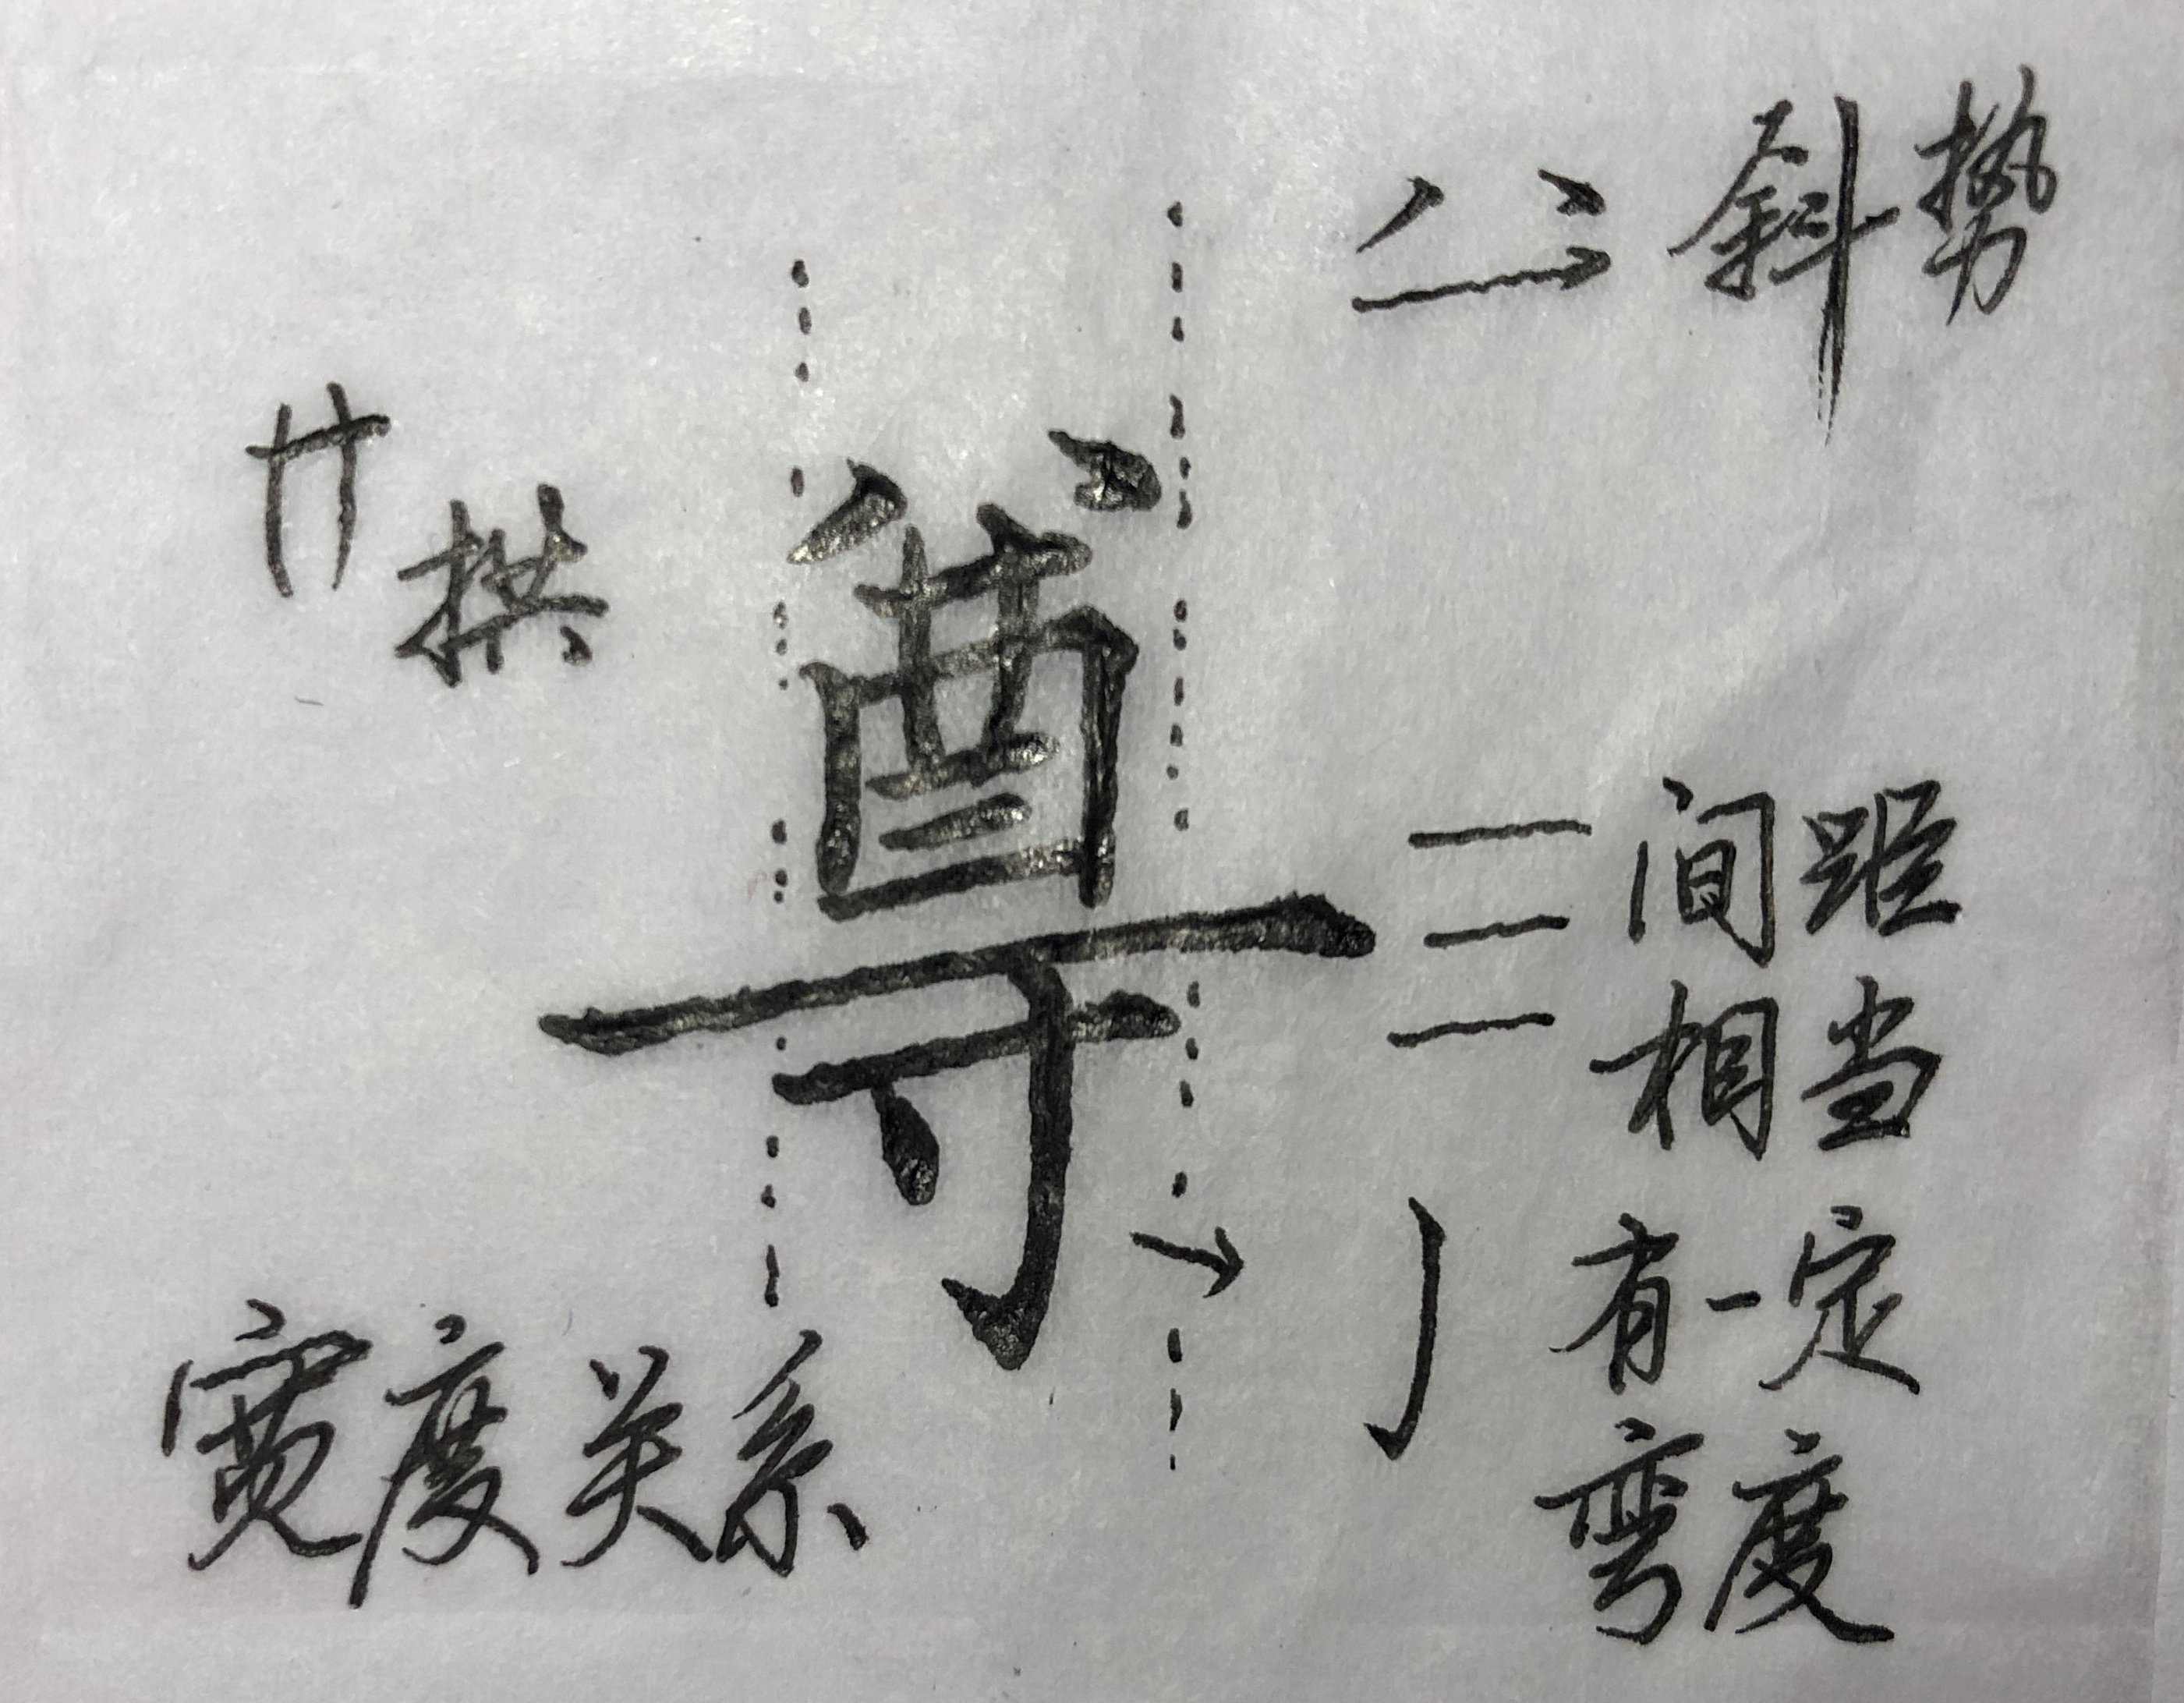 斜势
拱
尊
间距
相当
有一定
弯度
宽度关系